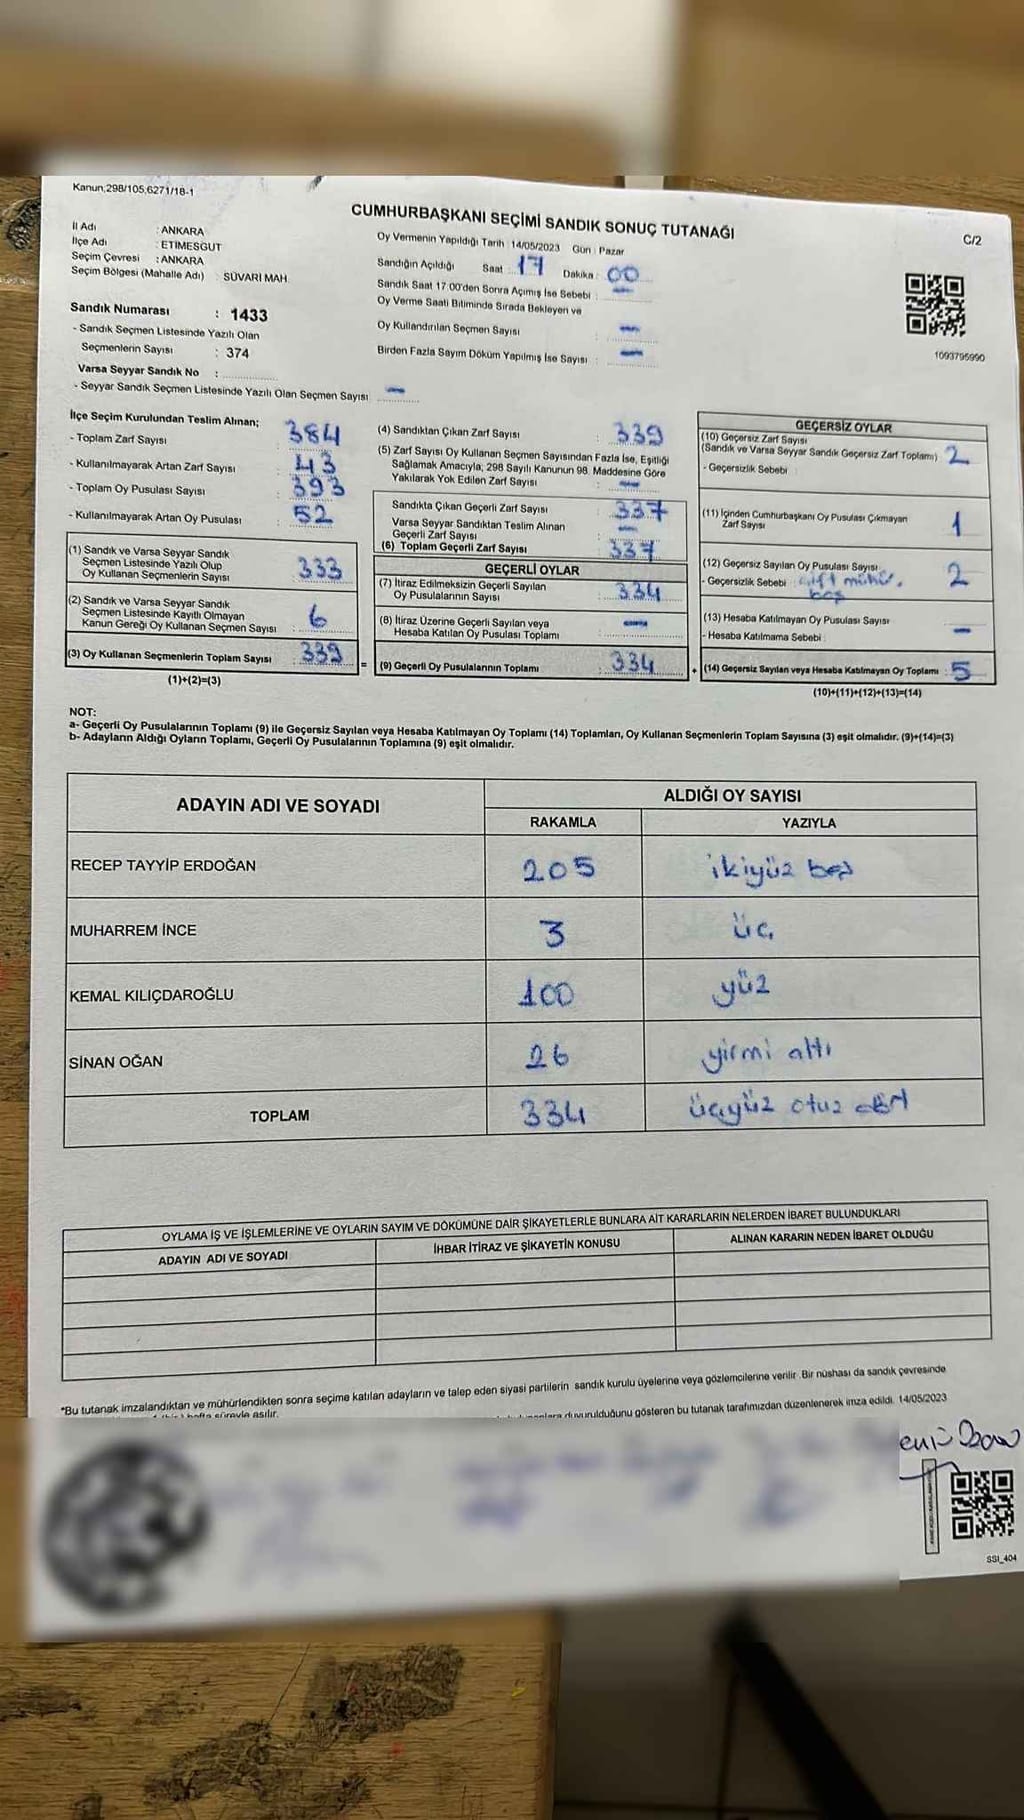 Kanun;298/105,6271/18-1
CUMHURBAŞKANI SEÇİMİ SANDIK SONUÇ TUTANAĞI
C/2
İl Adı : ANKARA
İlçe Adı : ETİMESGUT
Seçim Çevresi : ANKARA
Seçim Bölgesi (Mahalle Adı) : SÜVARİ MAH.
Oy Vermenin Yapıldığı Tarih : 14/05/2023 Gün : Pazar
Sandığın Açıldığı Saat : 17 Dakika : 00
Sandık Saat 17:00'den Sonra Açımış İse Sebebi : —
Oy Verme Saati Bitiminde Sırada Bekleyen ve
Oy Kullandırılan Seçmen Sayısı : —
Birden Fazla Sayım Döküm Yapılmış İse Sayısı : —
1093795990
Sandık Numarası : 1433
- Sandık Seçmen Listesinde Yazılı Olan
Seçmenlerin Sayısı : 374
Varsa Seyyar Sandık No :
- Seyyar Sandık Seçmen Listesinde Yazılı Olan Seçmen Sayısı —
İlçe Seçim Kurulundan Teslim Alınan;
- Toplam Zarf Sayısı : 384
- Kullanılmayarak Artan Zarf Sayısı : 43
- Toplam Oy Pusulası Sayısı : 393
- Kullanılmayarak Artan Oy Pusulası : 52
(1) Sandık ve Varsa Seyyar Sandık
Seçmen Listesinde Yazılı Olup
Oy Kullanan Seçmenlerin Sayısı : 333
(2) Sandık ve Varsa Seyyar Sandık
Seçmen Listesinde Kayıtlı Olmayan
Kanun Gereği Oy Kullanan Seçmen Sayısı : 6
(3) Oy Kullanan Seçmenlerin Toplam Sayısı : 339
(1)+(2)=(3)
(4) Sandıktan Çıkan Zarf Sayısı : 339
(5) Zarf Sayısı Oy Kullanan Seçmen Sayısından Fazla İse, Eşitliği
Sağlamak Amacıyla; 298 Sayılı Kanunun 98. Maddesine Göre
Yakılarak Yok Edilen Zarf Sayısı : —
Sandıkta Çıkan Geçerli Zarf Sayısı : 337
Varsa Seyyar Sandıktan Teslim Alınan
Geçerli Zarf Sayısı : —
(6) Toplam Geçerli Zarf Sayısı : 337
GEÇERLİ OYLAR
(7) İtiraz Edilmeksizin Geçerli Sayılan
Oy Pusulalarının Sayısı : 334
(8) İtiraz Üzerine Geçerli Sayılan veya
Hesaba Katılan Oy Pusulası Toplamı : —
= (9) Geçerli Oy Pusulalarının Toplamı : 334
GEÇERSİZ OYLAR
(10) Geçersiz Zarf Sayısı
(Sandık ve Varsa Seyyar Sandık Geçersiz Zarf Toplamı) 2
- Geçersizlik Sebebi :
(11) İçinden Cumhurbaşkanı Oy Pusulası Çıkmayan
Zarf Sayısı 1
(12) Geçersiz Sayılan Oy Pusulası Sayısı : 2
- Geçersizlik Sebebi : çift mühür,
boş
(13) Hesaba Katılmayan Oy Pusulası Sayısı : —
- Hesaba Katılmama Sebebi :
+ (14) Geçersiz Sayılan veya Hesaba Katılmayan Oy Toplamı : 5
(10)+(11)+(12)+(13)=(14)
NOT:
a- Geçerli Oy Pusulalarının Toplamı (9) ile Geçersiz Sayılan veya Hesaba Katılmayan Oy Toplamı (14) Toplamları, Oy Kullanan Seçmenlerin Toplam Sayısına (3) eşit olmalıdır. (9)+(14)=(3)
b- Adayların Aldığı Oyların Toplamı, Geçerli Oy Pusulalarının Toplamına (9) eşit olmalıdır.
ADAYIN ADI VE SOYADI
ALDIĞI OY SAYISI
RAKAMLA YAZIYLA
RECEP TAYYİP ERDOĞAN 205 ikiyüz beş
MUHARREM İNCE 3 üç
KEMAL KILIÇDAROĞLU 100 yüz
SİNAN OĞAN 26 yirmi altı
TOPLAM 334 üçyüz otuz dört
OYLAMA İŞ VE İŞLEMLERİNE VE OYLARIN SAYIM VE DÖKÜMÜNE DAİR ŞİKAYETLERLE BUNLARA AİT KARARLARIN NELERDEN İBARET BULUNDUKLARI
ADAYIN ADI VE SOYADI İHBAR İTİRAZ VE ŞİKAYETİN KONUSU ALINAN KARARIN NEDEN İBARET OLDUĞU
*Bu tutanak imzalandıktan ve mühürlendikten sonra seçime katılan adayların ve talep eden siyasi partilerin sandık kurulu üyelerine veya gözlemcilerine verilir. Bir nüshası da sandık çevresinde
hafta süreyle asılır.
duyurulduğunu gösteren bu tutanak tarafımızdan düzenlenerek imza edildi. 14/05/2023
SSI_404